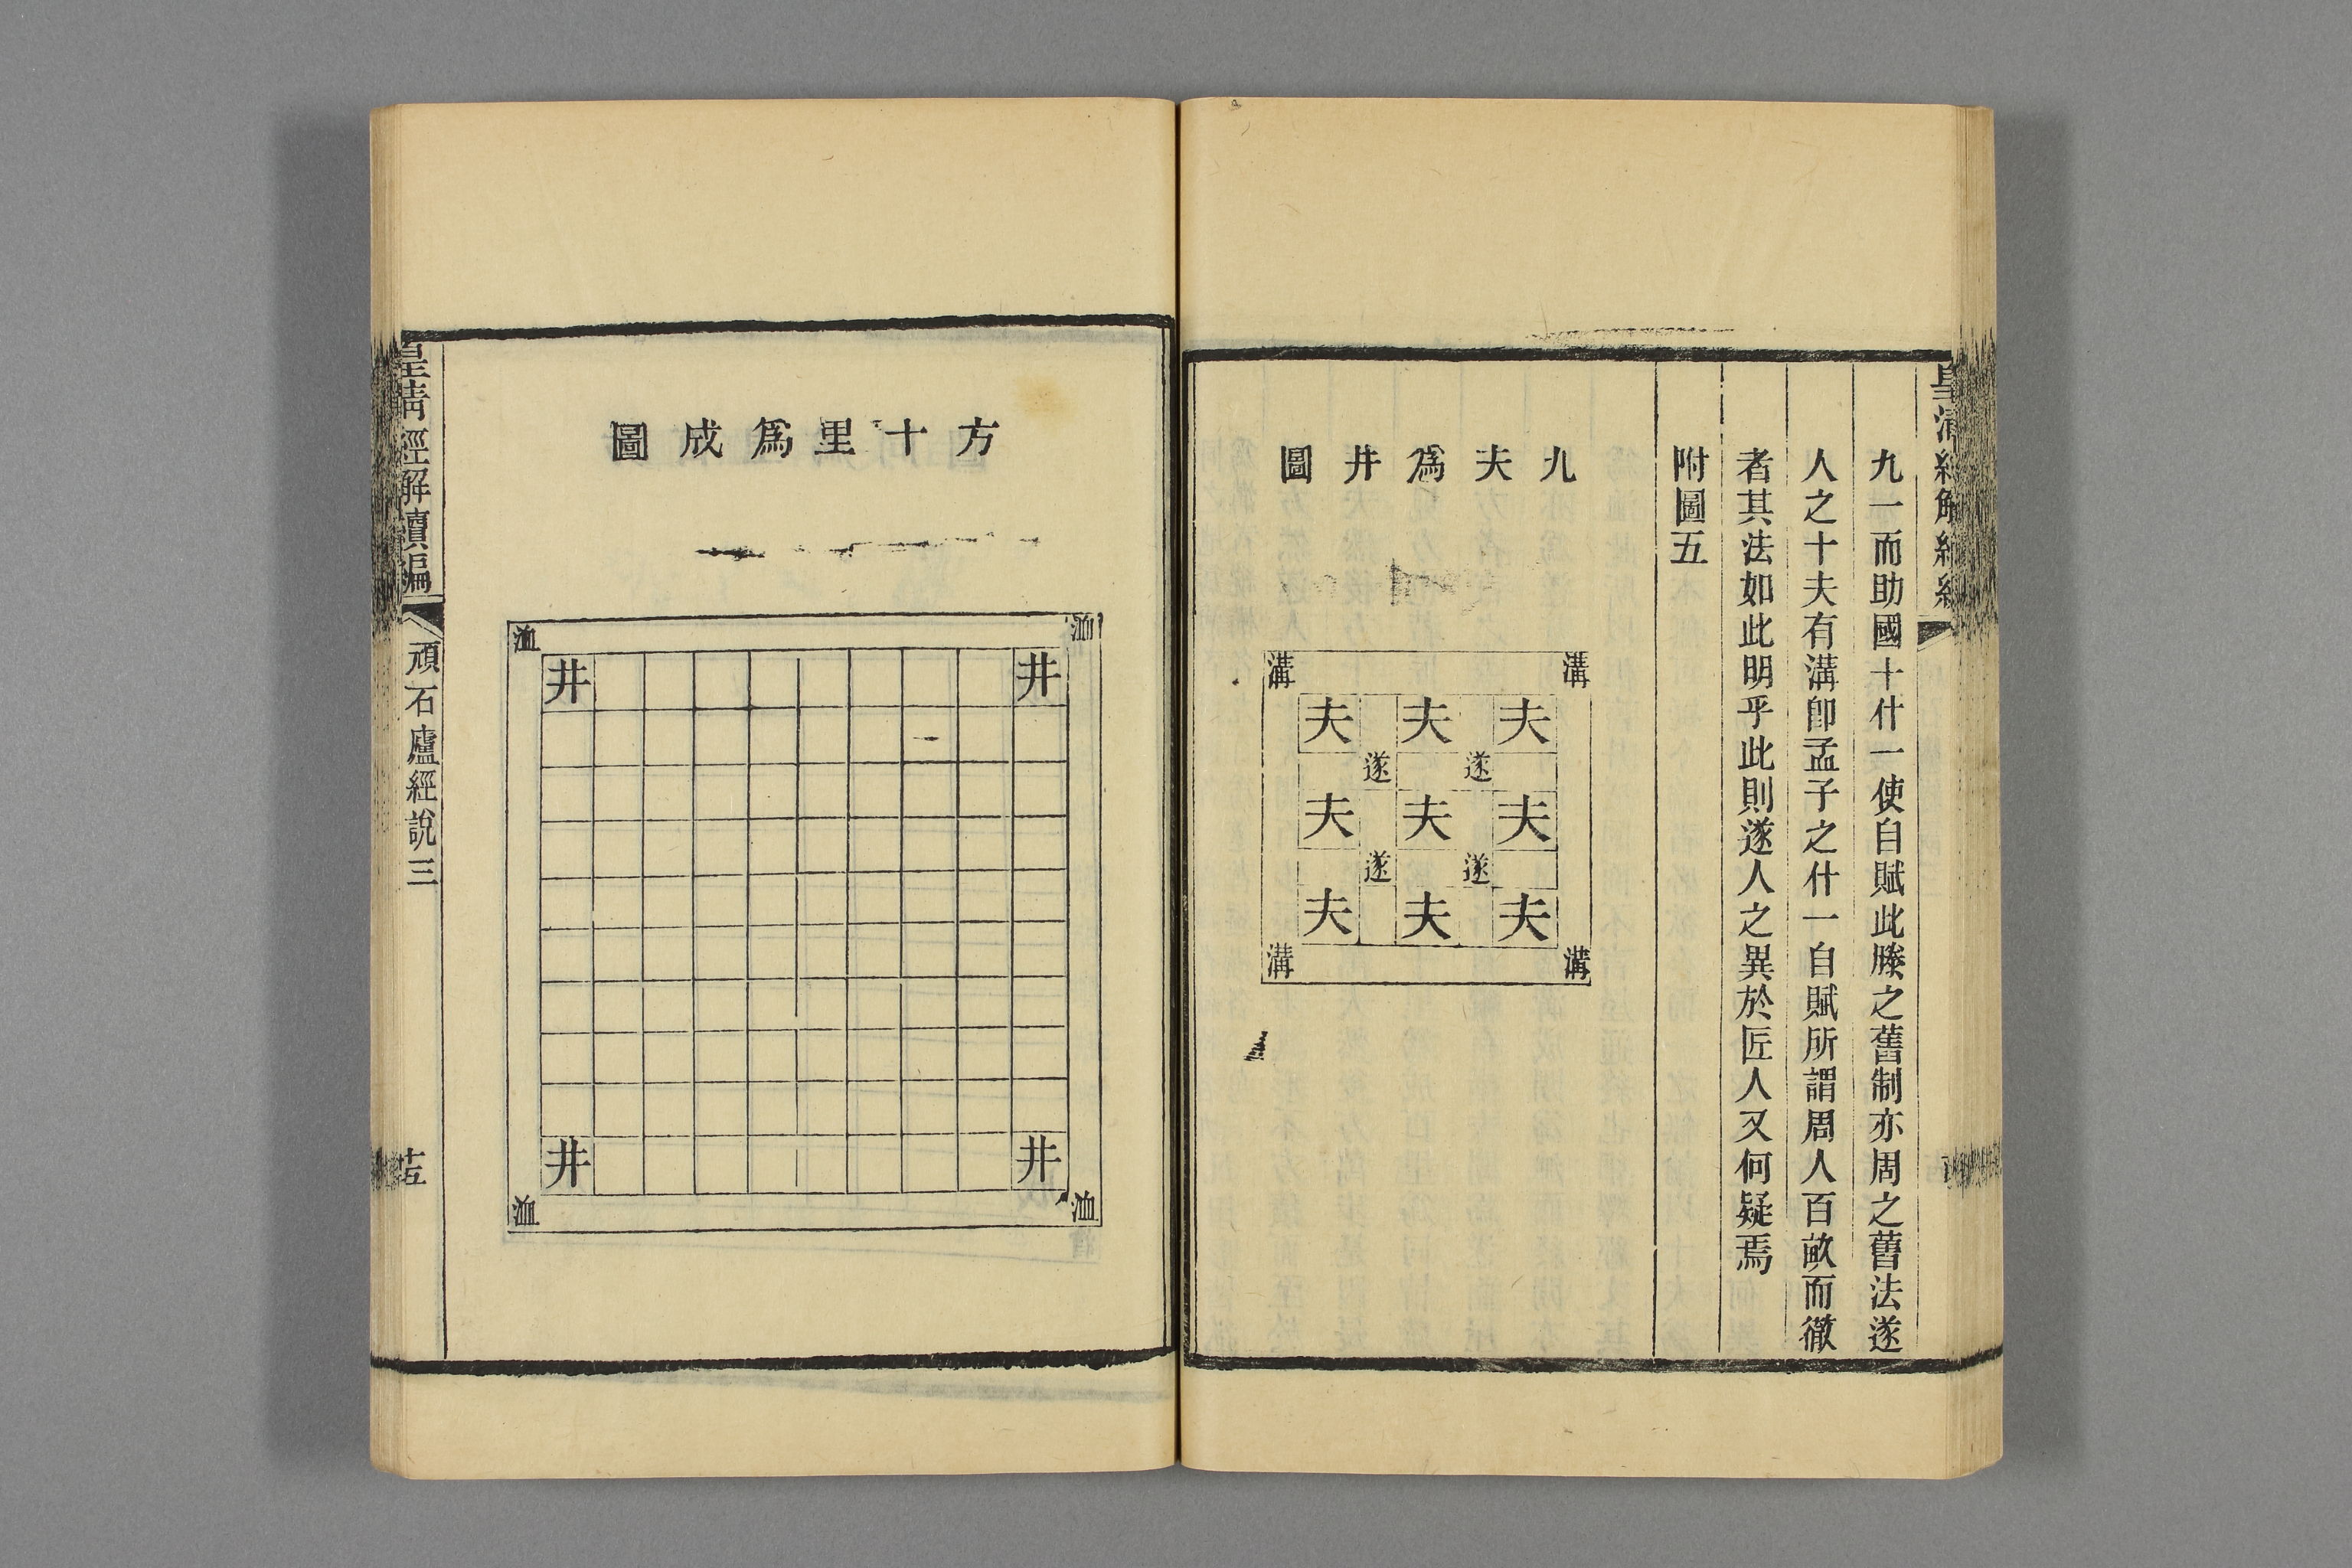 皇清經解續編
九一而助國十什一使自賦此滕之舊制亦周之舊法遂
人之十夫有溝卽孟子之什一自賦所謂周人百畝而徹
者其法如此明乎此則遂人之異於匠人又何疑焉
附圖五
九夫爲井圖
溝 溝
夫 夫 夫
遂 遂
夫 夫 夫
遂 遂
夫 夫 夫
溝 溝
方十里爲成圖
洫 洫
井 井
井 井
洫 洫
皇清經解續編
頑石廬經說三
十五